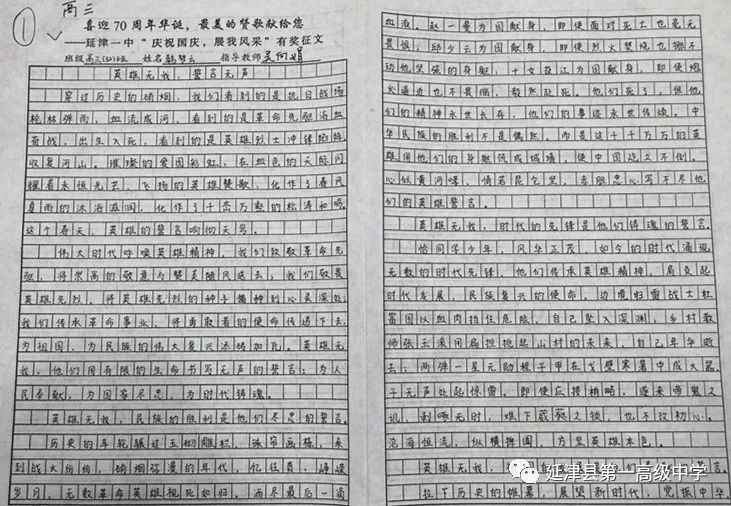 高三
①
喜迎70周年华诞，最美的赞歌献给您
——延津一中“庆祝国庆，展我风采”有奖征文
班级 高三 班 姓名 指导教师 吴向娟
英雄无我，誓言无声
穿过历史的硝烟，我们看到的是抗日战场
枪林弹雨，血流成河，看到的是革命先烈浴血
奋战，出生入死，看到的是英雄烈士冲锋陷阵
收复河山。璀璨的爱国彩虹，在血色的天际闪
耀着永恒光芒，飞扬的英雄赞歌，化作了春风
夏雨的沐浴滋润，化作了千峦万壑的松涛如鸣。
这个春天，英雄的誓言响彻天穹。
伟大时代呼唤英雄精神，我们致敬革命先
驱，将崇高的敬意与赞美随风送去；我们敬畏
英雄先烈，将英雄先烈的种子播种到心灵深处；
我们传承革命事业，将勇敢着的使命传递下去，
为祖国，为民族的伟大复兴添砖加瓦。英雄无
我，他们用有限的生命书写无声的誓言：为人
民奉献，为国家尽忠，为时代铸魂。
英雄无我，民族的胜利是他们尽忠的誓言。
历史的车轮辗过玉砌雕栏，珠帘画栋，来
到战火纷纷，硝烟弥漫的年代，忆往昔，峥嵘
岁月，无数革命英雄视死如归，洒尽最后一滴
血液。赵一曼为国献身，即使面对死亡也毫无
畏惧；邱少云为国献身，即使烈火焚烧也挪不
动他坚强的身躯；十女投江为国献身，即使炮
火逼迫也不畏缩，毅然赴死。他们死了，但他
们的精神永世长存，他们的事迹永世传颂。中
华民族的胜利不是偶然，而是这千千万万的英
雄用他们的身躯筑成城墙，使中国屹立不倒。
心似黄河哮，情若昆仑里，赤胆忠心写不尽他
们的英雄誓言。
英雄无我，时代的先锋是他们铸魂的誓言。
恰同学少年，风华正茂，如今的时代涌现
无数的时代先锋，他们传承英雄精神，肩负起
时代发展，民族复兴的使命。边境扫雷战士杜
富国以血肉挡住危险，自己坠入深渊；乡村教
师张玉滚用扁担挑起山村的未来，自己年华逝
去；两弹一星元勋程开甲在戈壁寒暑中成大器，
于无声处起惊雷。即使
讯，刺啄无时，难下 之锁，也不改初心。
沧海恒流，纵横捭阖，方显英雄本色。
英雄无我， 誓言
拉下历史的帷幕，展望新时代，党振中华，
延津县第一高级中学